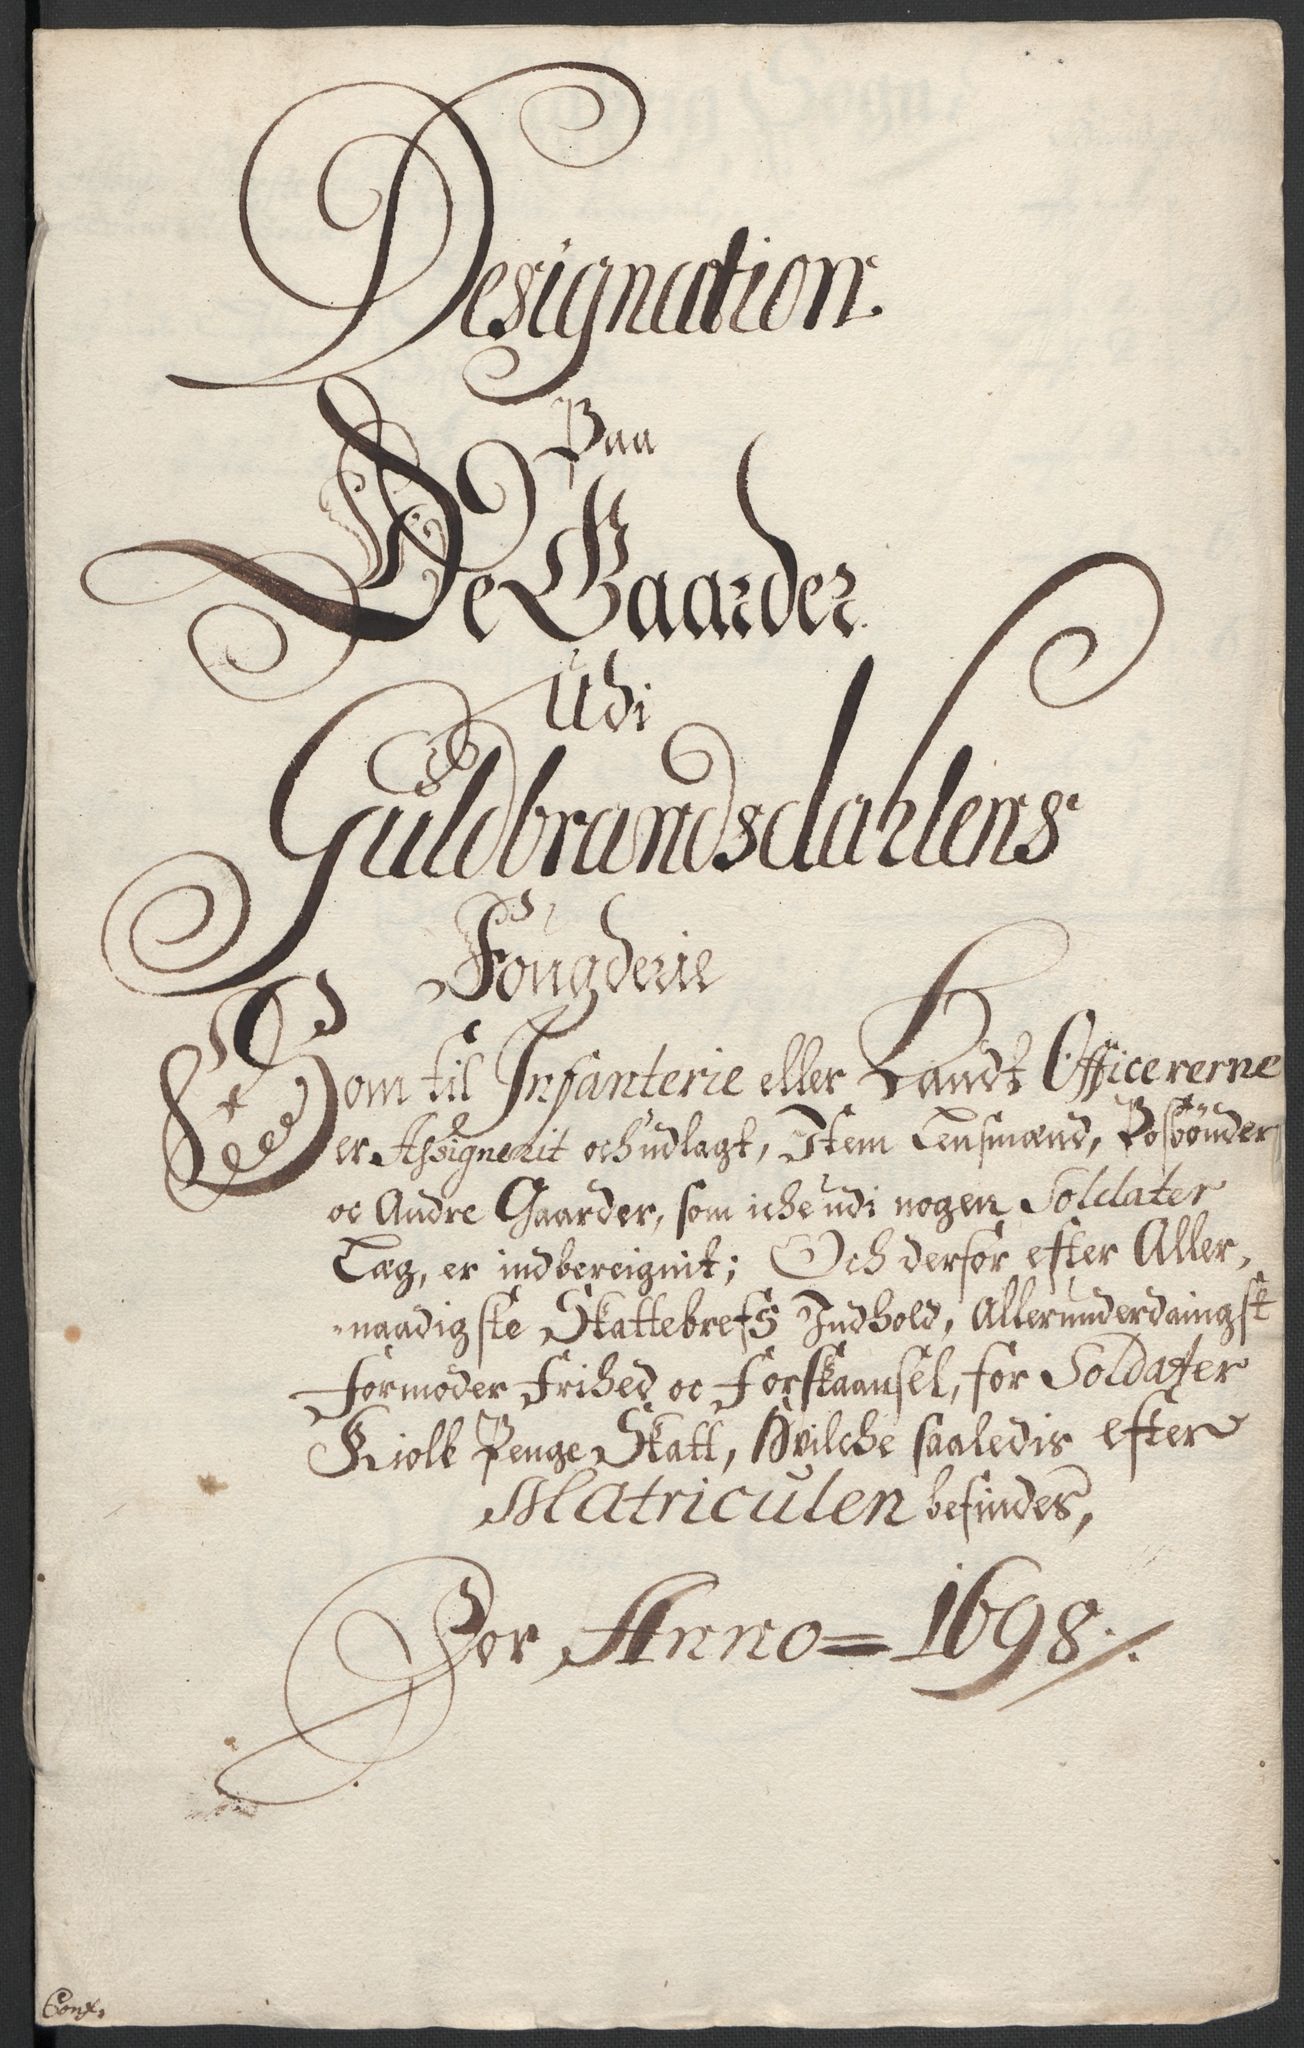 Designation
Paa
De Gaarder
Udi
Guldbrandsdahlens
Fougderie
Som til Infanterie eller Landt Officererne
er Assignerit och udlagt, Item Lensmænd, Postbønder
oc Andre Gaarder, som iche udi nogen Soldater
Læg, er indbereignit; Och derfor efter Aller-
naadigste Skattebrefs Indhold, Allerunderdaingst
Formoder Frihed oc Forskaansel, for Soldater
Kiolle Penge Skatt, Hvilche saaledis efter
Matriculen befindes,
For Anno = 1698.
Conf.